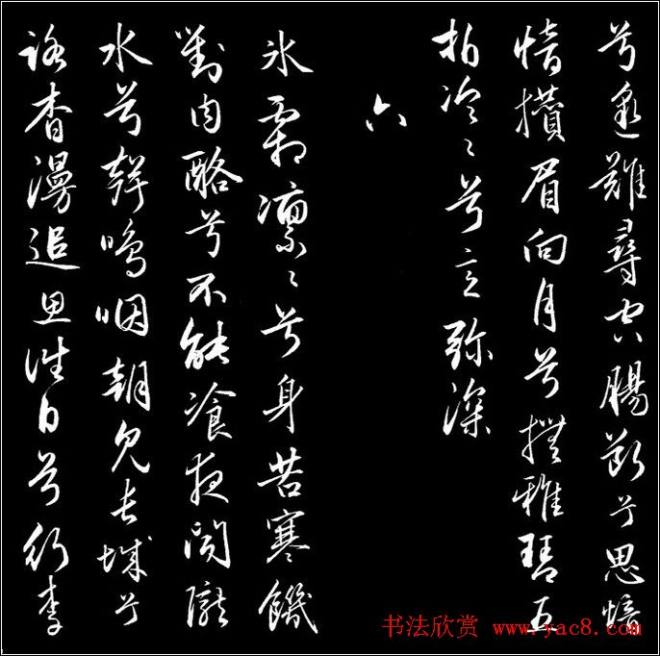 兮邈難尋空腸斷兮思愔
愔攢眉向月兮撫雅琴五
拍冷〻兮意弥深
六
氷霜凜〻兮身苦寒饑
對肉酪兮不能飡夜聞隴
水兮聲嗚咽朝見長城兮
路杳漫追思往日兮行李
书法欣赏 www.yac8.com